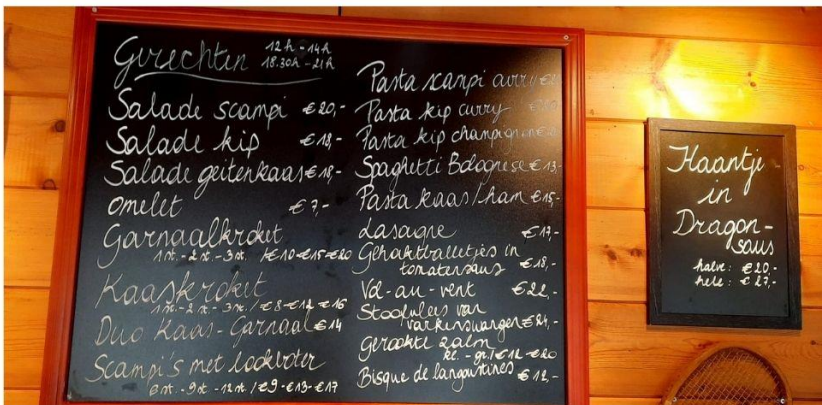 Gerechten
12h - 14h
18.30h - 21h
Salade scampi €20,-
Salade kip €18,-
Salade geitenkaas €18,-
Omelet €7,-
Garnaalkroket
1 st. - 2 st. - 3 st. / €10 - €15 - €20
Kaaskroket
1 st. - 2 st. - 3 st. / €8 - €12 - €16
Duo Kaas - Garnaal €14
Scampi's met lookboter
6 st. - 9 st. - 12 st. / €9 - €13 - €17
Pasta scampi curry
Pasta kip curry
Pasta kip champignon
Spaghetti Bolognese €13,-
Pasta kaas/ham €15,-
Lasagne €17,-
Gehaktballetjes in
tomatensaus €18,-
Vol-au-vent €22,-
Stoofvlees van
varkenswangen €24,-
Gerookte zalm
kl. - gr. / €12 - €20
Bisque de langoustines €12,-
Haantje
in
Dragon-
saus
halve: €20,-
hele: €27,-